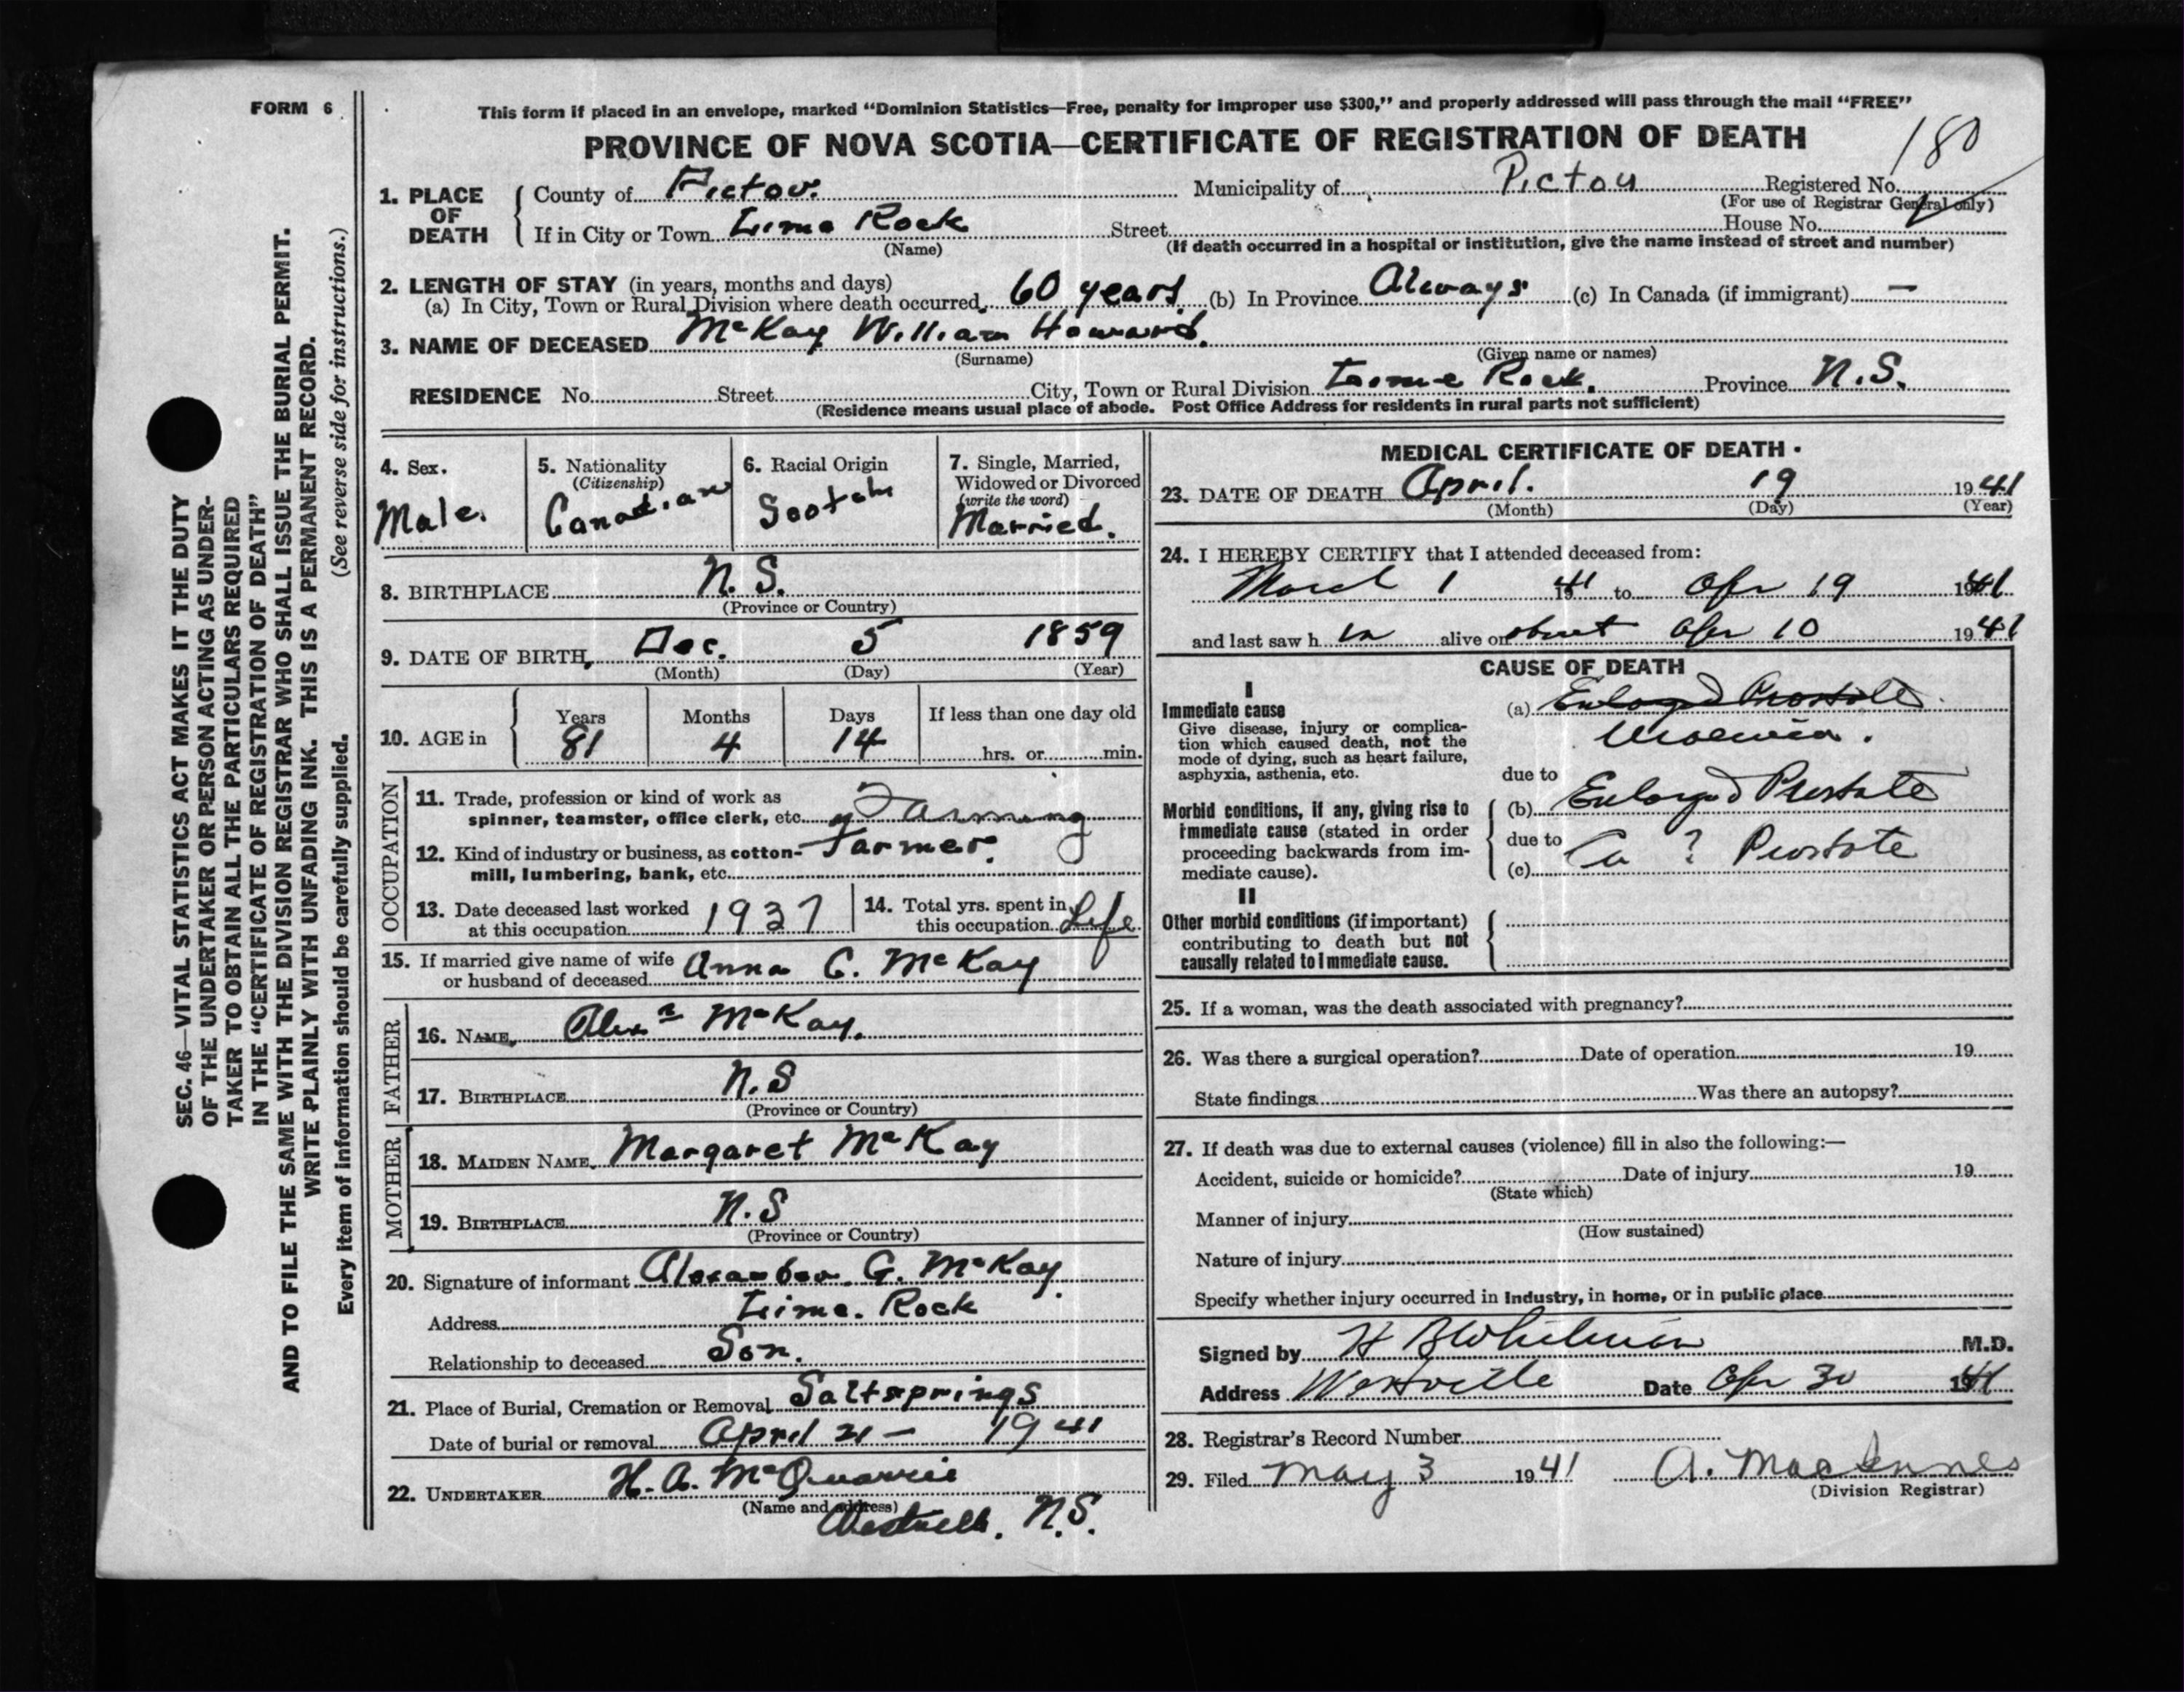 FORM 6
This form if placed in an envelope, marked "Dominion Statistics—Free, penalty for improper use $300," and properly addressed will pass through the mail "FREE"
PROVINCE OF NOVA SCOTIA—CERTIFICATE OF REGISTRATION OF DEATH
180
1. PLACE OF DEATH
County of Pictou. Municipality of Pictou Registered No.
(For use of Registrar General only)
If in City or Town Lime Rock Street House No.
(Name) (If death occurred in a hospital or institution, give the name instead of street and number)
2. LENGTH OF STAY (in years, months and days)
(a) In City, Town or Rural Division where death occurred 60 years (b) In Province Always (c) In Canada (if immigrant) —
3. NAME OF DECEASED McKay William Howard.
(Surname) (Given name or names)
RESIDENCE No. Street City, Town or Rural Division Lime Rock. Province N.S.
(Residence means usual place of abode. Post Office Address for residents in rural parts not sufficient)
4. Sex.
Male.
5. Nationality
(Citizenship)
Canadian
6. Racial Origin
Scotch
7. Single, Married,
Widowed or Divorced
(write the word)
Married.
8. BIRTHPLACE N.S.
(Province or Country)
9. DATE OF BIRTH, Dec. 5 1859
(Month) (Day) (Year)
10. AGE in
Years Months Days If less than one day old
81 4 14 hrs. or min.
OCCUPATION
11. Trade, profession or kind of work as
spinner, teamster, office clerk, etc. Farming
12. Kind of industry or business, as cotton- Farmer.
mill, lumbering, bank, etc.
13. Date deceased last worked
at this occupation 1937
14. Total yrs. spent in
this occupation Life
15. If married give name of wife
or husband of deceased Anna C. McKay
FATHER
16. NAME Alexr McKay.
17. BIRTHPLACE N.S
(Province or Country)
MOTHER
18. MAIDEN NAME Margaret McKay
19. BIRTHPLACE N.S
(Province or Country)
20. Signature of informant Alexander G. McKay.
Address Lime. Rock
Relationship to deceased Son.
21. Place of Burial, Cremation or Removal Saltsprings
Date of burial or removal April 21 — 1941
22. UNDERTAKER H. A. McQuarrie
(Name and address)
Westville. N.S.
MEDICAL CERTIFICATE OF DEATH.
23. DATE OF DEATH April. 19 1941
(Month) (Day) (Year)
24. I HEREBY CERTIFY that I attended deceased from:
March 1 1941 to Apr 19 1941
and last saw h im alive on about Apr 10 1941
CAUSE OF DEATH
I
Immediate cause
Give disease, injury or complication which caused death, not the
mode of dying, such as heart failure,
asphyxia, asthenia, etc.
(a) Enlarged Prostate
Uraemia.
due to
Morbid conditions, if any, giving rise to
immediate cause (stated in order
proceeding backwards from immediate cause).
(b) Enlarged Prostate
due to
(c) Ca ? Prostate
II
Other morbid conditions (if important)
contributing to death but not
causally related to immediate cause.
25. If a woman, was the death associated with pregnancy?
26. Was there a surgical operation? Date of operation 19
State findings Was there an autopsy?
27. If death was due to external causes (violence) fill in also the following:—
Accident, suicide or homicide? Date of injury 19
(State which)
Manner of injury
(How sustained)
Nature of injury
Specify whether injury occurred in industry, in home, or in public place
Signed by H B Whitman M.D.
Address Westville Date Apr 30 1941
28. Registrar's Record Number
29. Filed May 3 1941 A. MacInnes
(Division Registrar)
SEC. 46—VITAL STATISTICS ACT MAKES IT THE DUTY
OF THE UNDERTAKER OR PERSON ACTING AS UNDER-
TAKER TO OBTAIN ALL THE PARTICULARS REQUIRED
IN THE "CERTIFICATE OF REGISTRATION OF DEATH"
AND TO FILE THE SAME WITH THE DIVISION REGISTRAR WHO SHALL ISSUE THE BURIAL PERMIT.
WRITE PLAINLY WITH UNFADING INK. THIS IS A PERMANENT RECORD.
Every item of information should be carefully supplied. (See reverse side for instructions.)